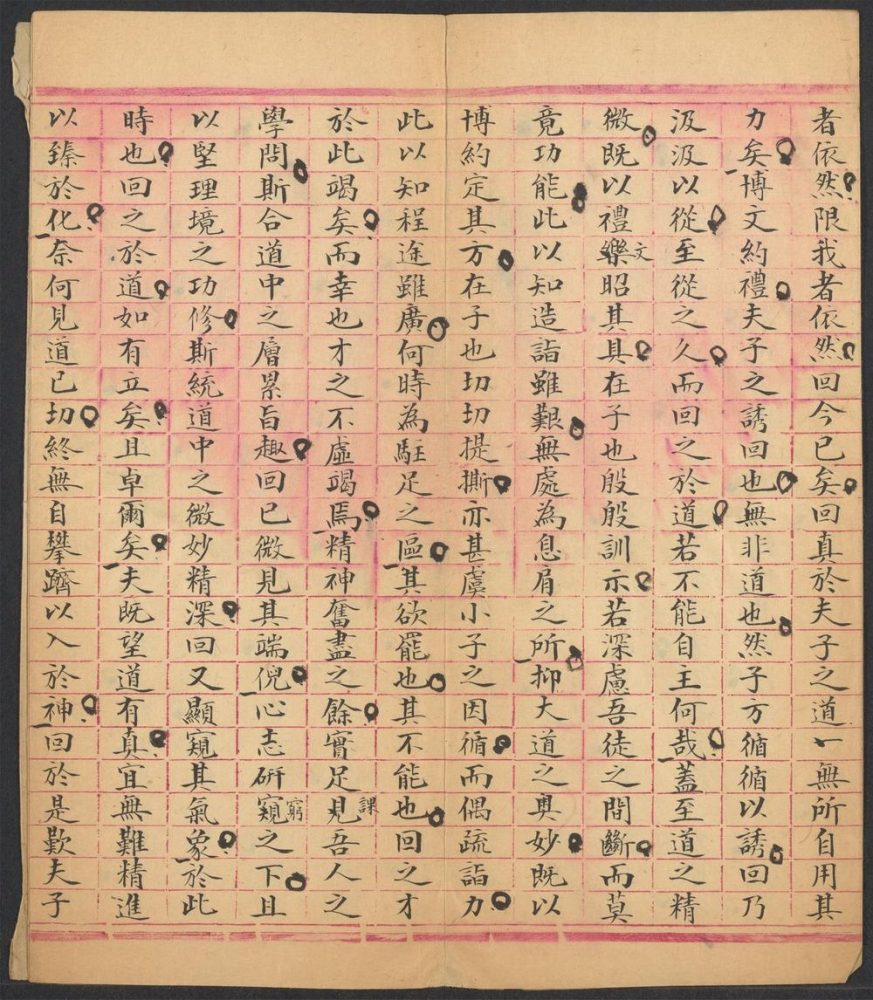 者依然限我者依然回今已矣回真於夫子之道一無所自用其
力矣博文約禮夫子之誘回也無非道也然子方循循以誘回乃
汲汲以從至從之久而回之於道若不能自主何哉蓋至道之精
微既以禮樂文昭其具在子也殷殷訓示若深慮吾徒之間斷而莫
竟功能此以知造詣雖艱無處為息肩之所抑大道之奧妙既以
博約定其方在子也切切提撕亦甚虞小子之因循而偶疏詣力
此以知程途雖廣何時為駐足之區其欲罷也其不能也回之才
於此竭矣而幸也才之不虛竭焉精神奮盡之餘實足見課吾人之
學問斯合道中之層累旨趣回已微見其端倪心志研窺窮之下且
以堅理境之功修斯統道中之微妙精深回又顯窺其氣象於此
時也回之於道如有立矣且卓爾矣夫既望道有真宜無難精進
以臻於化奈何見道已切終無自攀躋以入於神回於是歎夫子